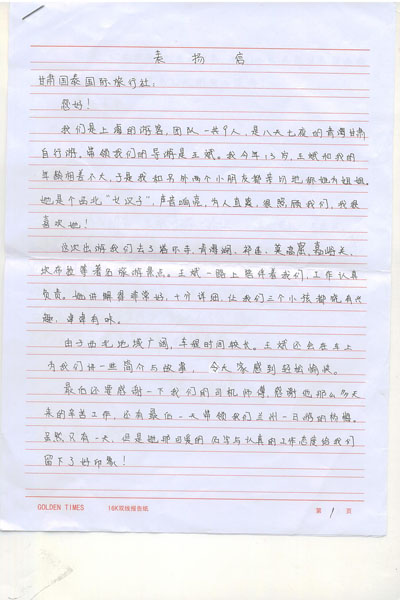 表扬信
甘肃国泰国际旅行社:
您好!
我们是上海的游客,团队一共9人,是八天七夜的青海甘肃
自行游。带领我们的导游是王斌。我今年13岁,王斌和我的
年龄相差不大,于是我和另外两个小朋友都亲切地称她为姐姐。
她是个西北“女汉子”,声音响亮,为人直爽,很照顾我们,我很
喜欢她!
这次出游我们去了塔尔寺,青海湖,祁连,莫高窟,嘉峪关,
张掖等著名旅游景点。王斌一路上陪伴着我们,工作认真
负责。她讲解得非常好,十分详细,让我们三个小孩都听有兴
趣,津津有味。
由于西北地域广阔,车程时间较长。王斌还会在车上
为我们讲一些简介与故事,令大家感到轻松愉快。
最后还要感谢一下我们的司机师傅,感谢他那么多天
来的辛苦工作,还有最后一天带领我们兰州一日游的杨
虽然只有一天,但是她那可爱的与认真的工作态度给我们
留下了好印象!
GOLDEN TIMES 16K双线报告纸 第1页